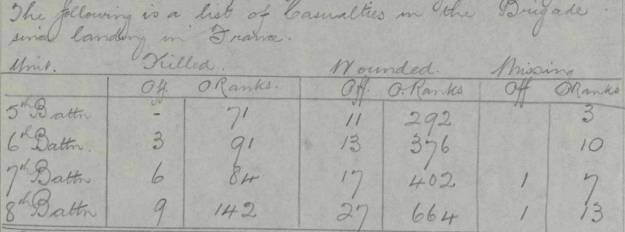 The following is a list of Casualties in the Brigade
since landing in France.
Unit. Killed. Wounded. Missing
Off. O.Ranks. Off. O.Ranks Off O.Ranks
5th Battn - 71 11 292 3
6th Battn. 3 91 13 376 10
7th Battn 6 84 17 402 1 7
8th Battn 9 142 27 664 1 13